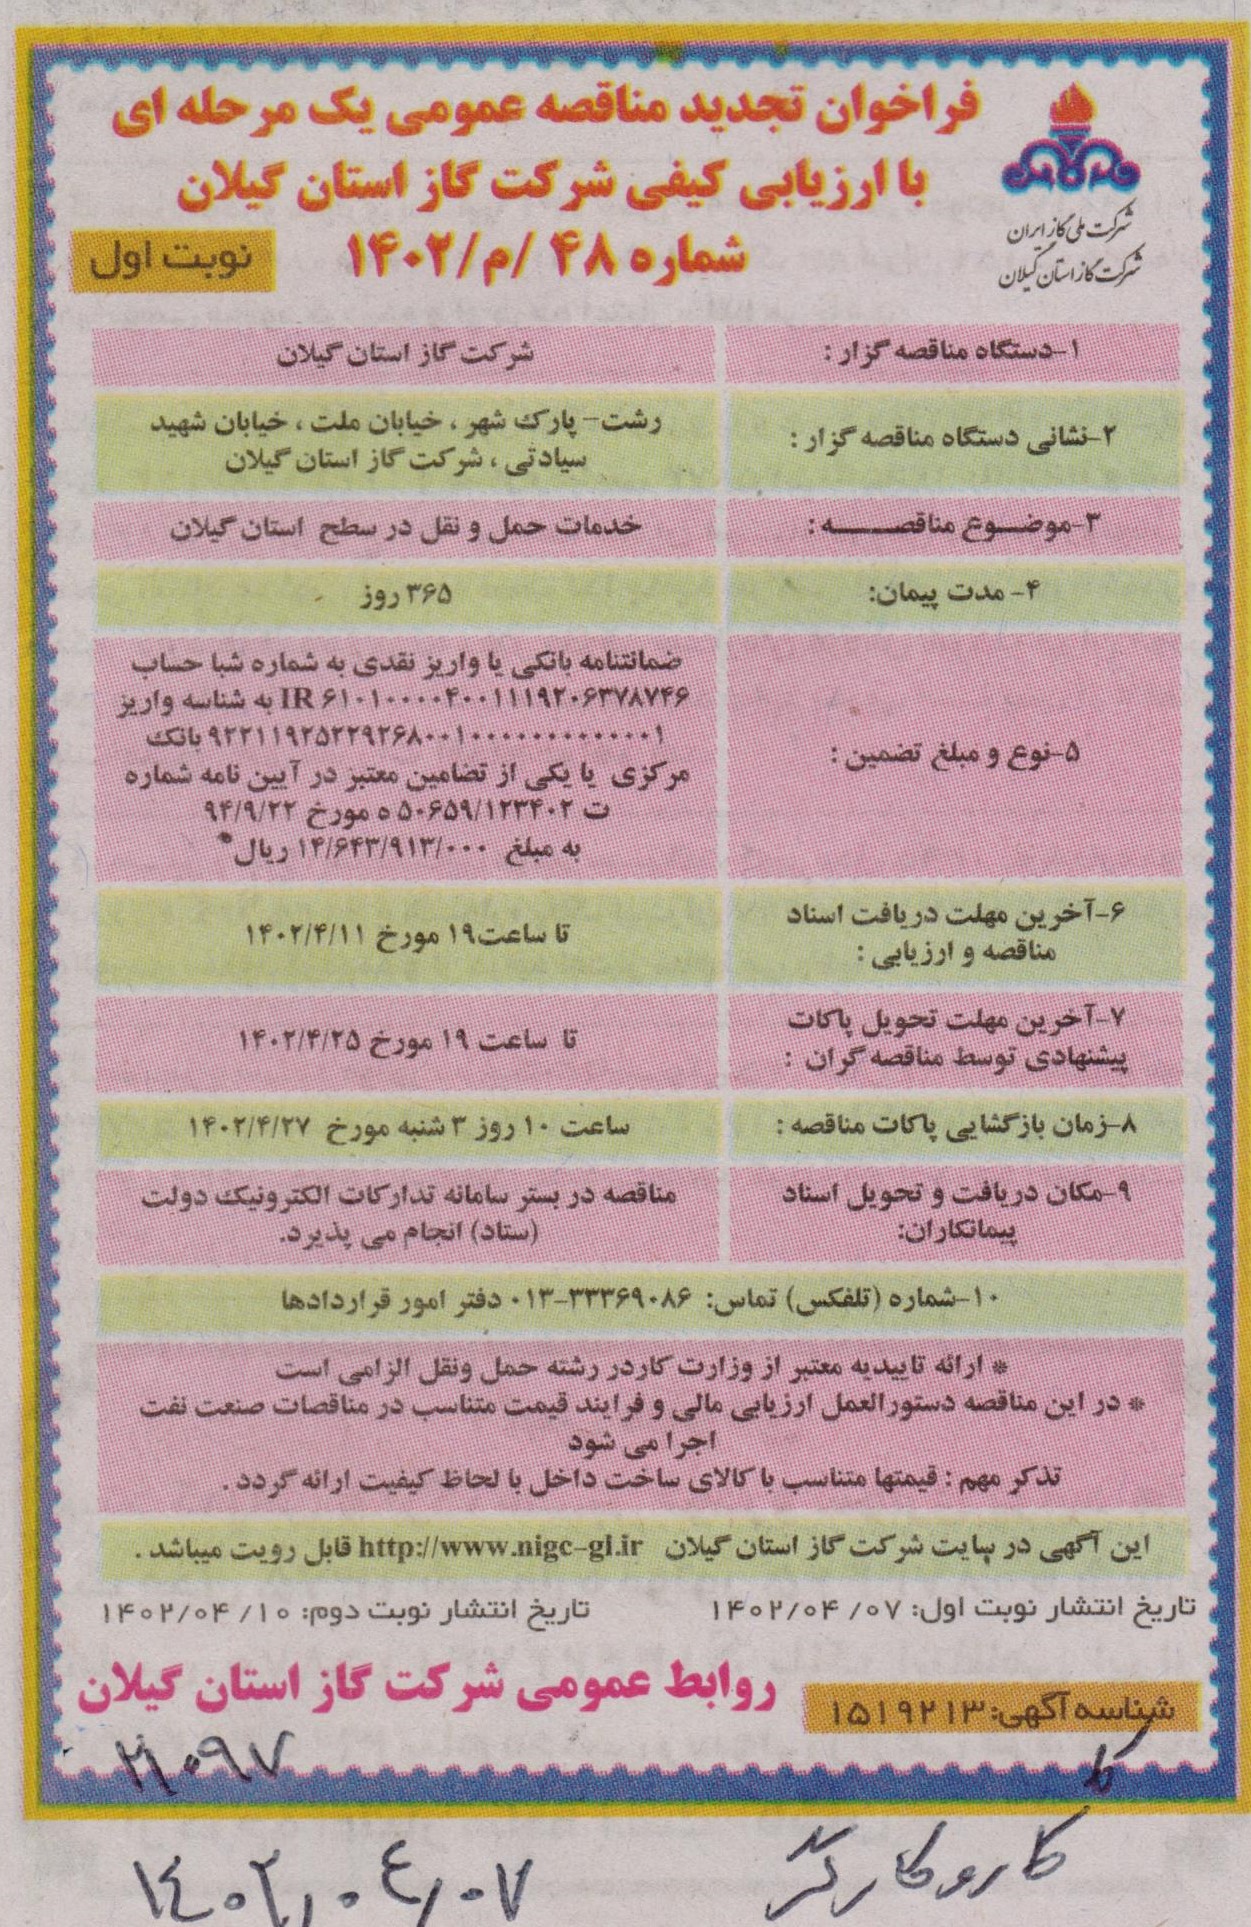 فراخوان تجدید مناقصه عمومی یک مرحله ای
با ارزیابی کیفی شرکت گاز استان گیلان
شماره ۴۸ /م/۱۴۰۲
نوبت اول
شرکت ملی گاز ایران
شرکت گاز استان گیلان
۱-دستگاه مناقصه گزار :
شرکت گاز استان گیلان
۲-نشانی دستگاه مناقصه گزار :
رشت- پارک شهر ، خیابان ملت ، خیابان شهید
سیادتی ، شرکت گاز استان گیلان
۳-موضـــوع مناقصـــــه :
خدمات حمل و نقل در سطح استان گیلان
۴- مدت پیمان:
۳۶۵ روز
۵-نوع و مبلغ تضمین :
ضمانتنامه بانکی یا واریز نقدی به شماره شبا حساب
IR ۶۱۰۱۰۰۰۰۴۰۰۱۱۱۹۲۰۶۳۷۸۷۴۶ به شناسه واریز
بانک
مرکزی یا یکی از تضامین معتبر در آیین نامه شماره
ت ۵۰۶۵۹/۱۲۳۴۰۲ ه مورخ ۹۴/۹/۲۲
به مبلغ ۱۴/۶۴۳/۹۱۳/۰۰۰ ریال
۶-آخرین مهلت دریافت اسناد
مناقصه و ارزیابی :
تا ساعت۱۹ مورخ ۱۴۰۲/۴/۱۱
۷-آخرین مهلت تحویل پاکات
پیشنهادی توسط مناقصه گران :
تا ساعت ۱۹ مورخ ۱۴۰۲/۴/۲۵
۸-زمان بازگشایی پاکات مناقصه :
ساعت ۱۰ روز ۳ شنبه مورخ ۱۴۰۲/۴/۲۷
۹-مکان دریافت و تحویل اسناد
پیمانکاران:
مناقصه در بستر سامانه تدارکات الکترونیک دولت
(ستاد) انجام می پذیرد.
۱۰-شماره (تلفکس) تماس: ۳۳۳۶۹۰۸۶-۰۱۳ دفتر امور قراردادها
* ارائه تاییدیه معتبر از وزارت کاردر رشته حمل ونقل الزامی است
* در این مناقصه دستورالعمل ارزیابی مالی و فرایند قیمت متناسب در مناقصات صنعت نفت
اجرا می شود
تذکر مهم : قیمتها متناسب با کالای ساخت داخل با لحاظ کیفیت ارائه گردد .
این آگهی در سایت شرکت گاز استان گیلان http://www.nigc-gl.ir قابل رویت میباشد .
تاریخ انتشار نوبت اول: ۰۷ /۱۴۰۲/۰۴
تاریخ انتشار نوبت دوم: ۱۰ /۱۴۰۲/۰۴
شناسه آگهی: ۱۵۱۹۲۱۳
روابط عمومی شرکت گاز استان گیلان
۲۱۰۹۷
کار و کارگر
۱۴۰۲/۰۴/۰۷